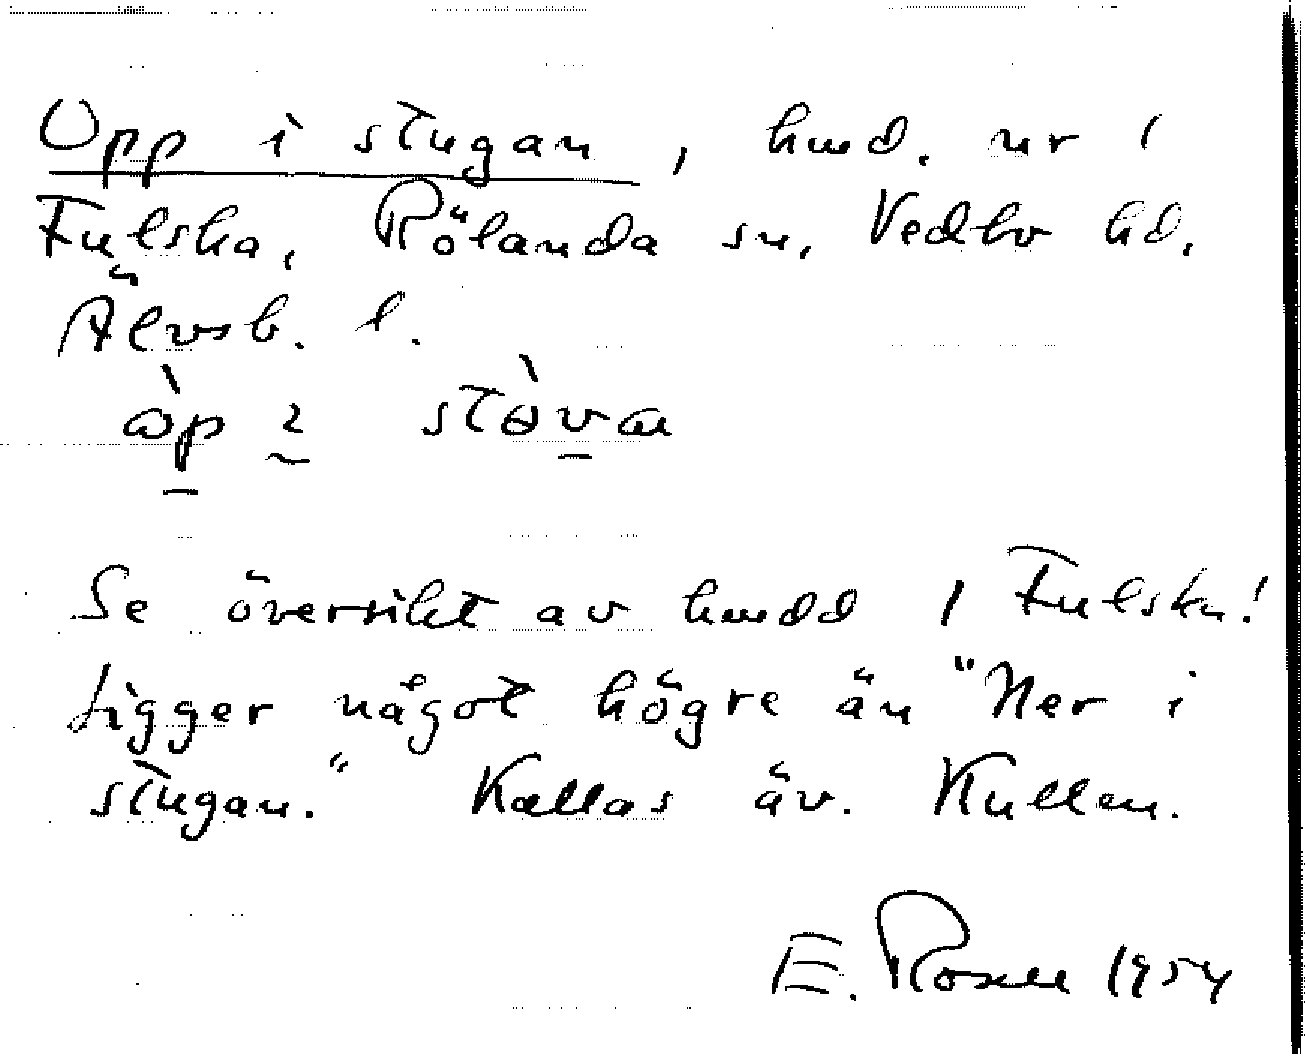 Upp i stugan, hmd. nr 1
Fulska, Rölanda sn, Vedbo hd.
Älvsb. l.
Se översikt av hmdd i Fulska!
Ligger något högre än "Ner i
stugan." Kallas äv. Kullen.
E. Rosell 1954